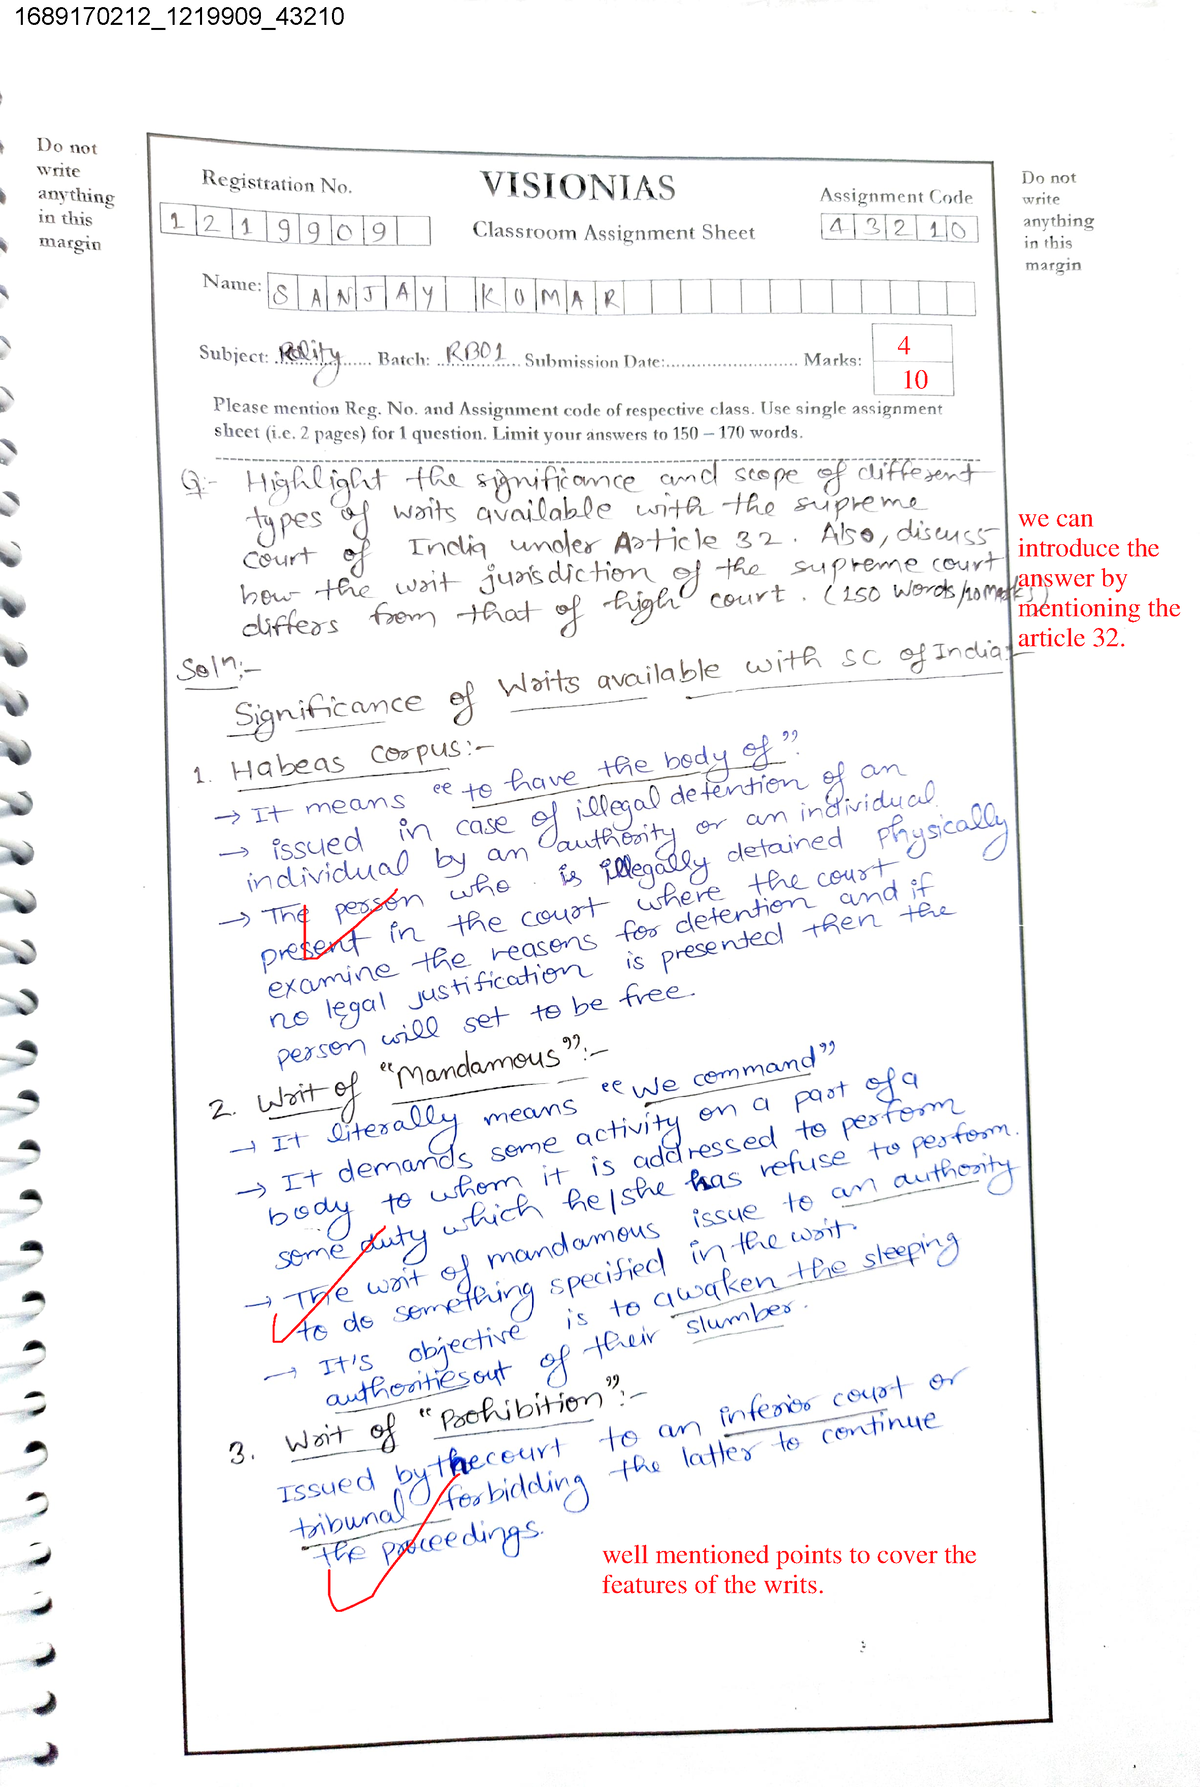 1689170212_1219909_43210
Do not
write
anything
in this
margin
Registration No.
1219909
VISIONIAS
Classroom Assignment Sheet
Assignment Code
43210
Do not
write
anything
in this
margin
Name: SANJAY KUMAR
Subject: Polity Batch: RB01 Submission Date:.......................... Marks:
4
10
Please mention Reg. No. and Assignment code of respective class. Use single assignment
sheet (i.e. 2 pages) for 1 question. Limit your answers to 150 – 170 words.
Q:- Highlight the significance and scope of different
types of writs available with the supreme
court of India under Article 32. Also, discuss
how the writ jurisdiction of the supreme court
differs from that of high court. (150 words/10 marks)
we can
introduce the
answer by
mentioning the
article 32.
Soln:-
Significance of Writs available with SC of India:-
1. Habeas corpus:-
→ It means "to have the body of".
→ issued in case of illegal detention of an
individual by an authority or an individual.
→ The person who is illegally detained physically
present in the court where the court
examine the reasons for detention and if
no legal justification is presented then the
person will set to be free.
2. Writ of "Mandamous":-
→ It literally means "We command"
→ It demands some activity on a part of a
body to whom it is addressed to perform
some duty which he/she has refuse to perform.
→ The writ of mandamous issue to an authority
to do something specified in the writ.
→ It's objective is to awaken the sleeping
authorities out of their slumber.
3. Writ of "Prohibition":-
Issued by the court to an inferior court or
tribunal forbidding the latter to continue
the proceedings.
well mentioned points to cover the
features of the writs.